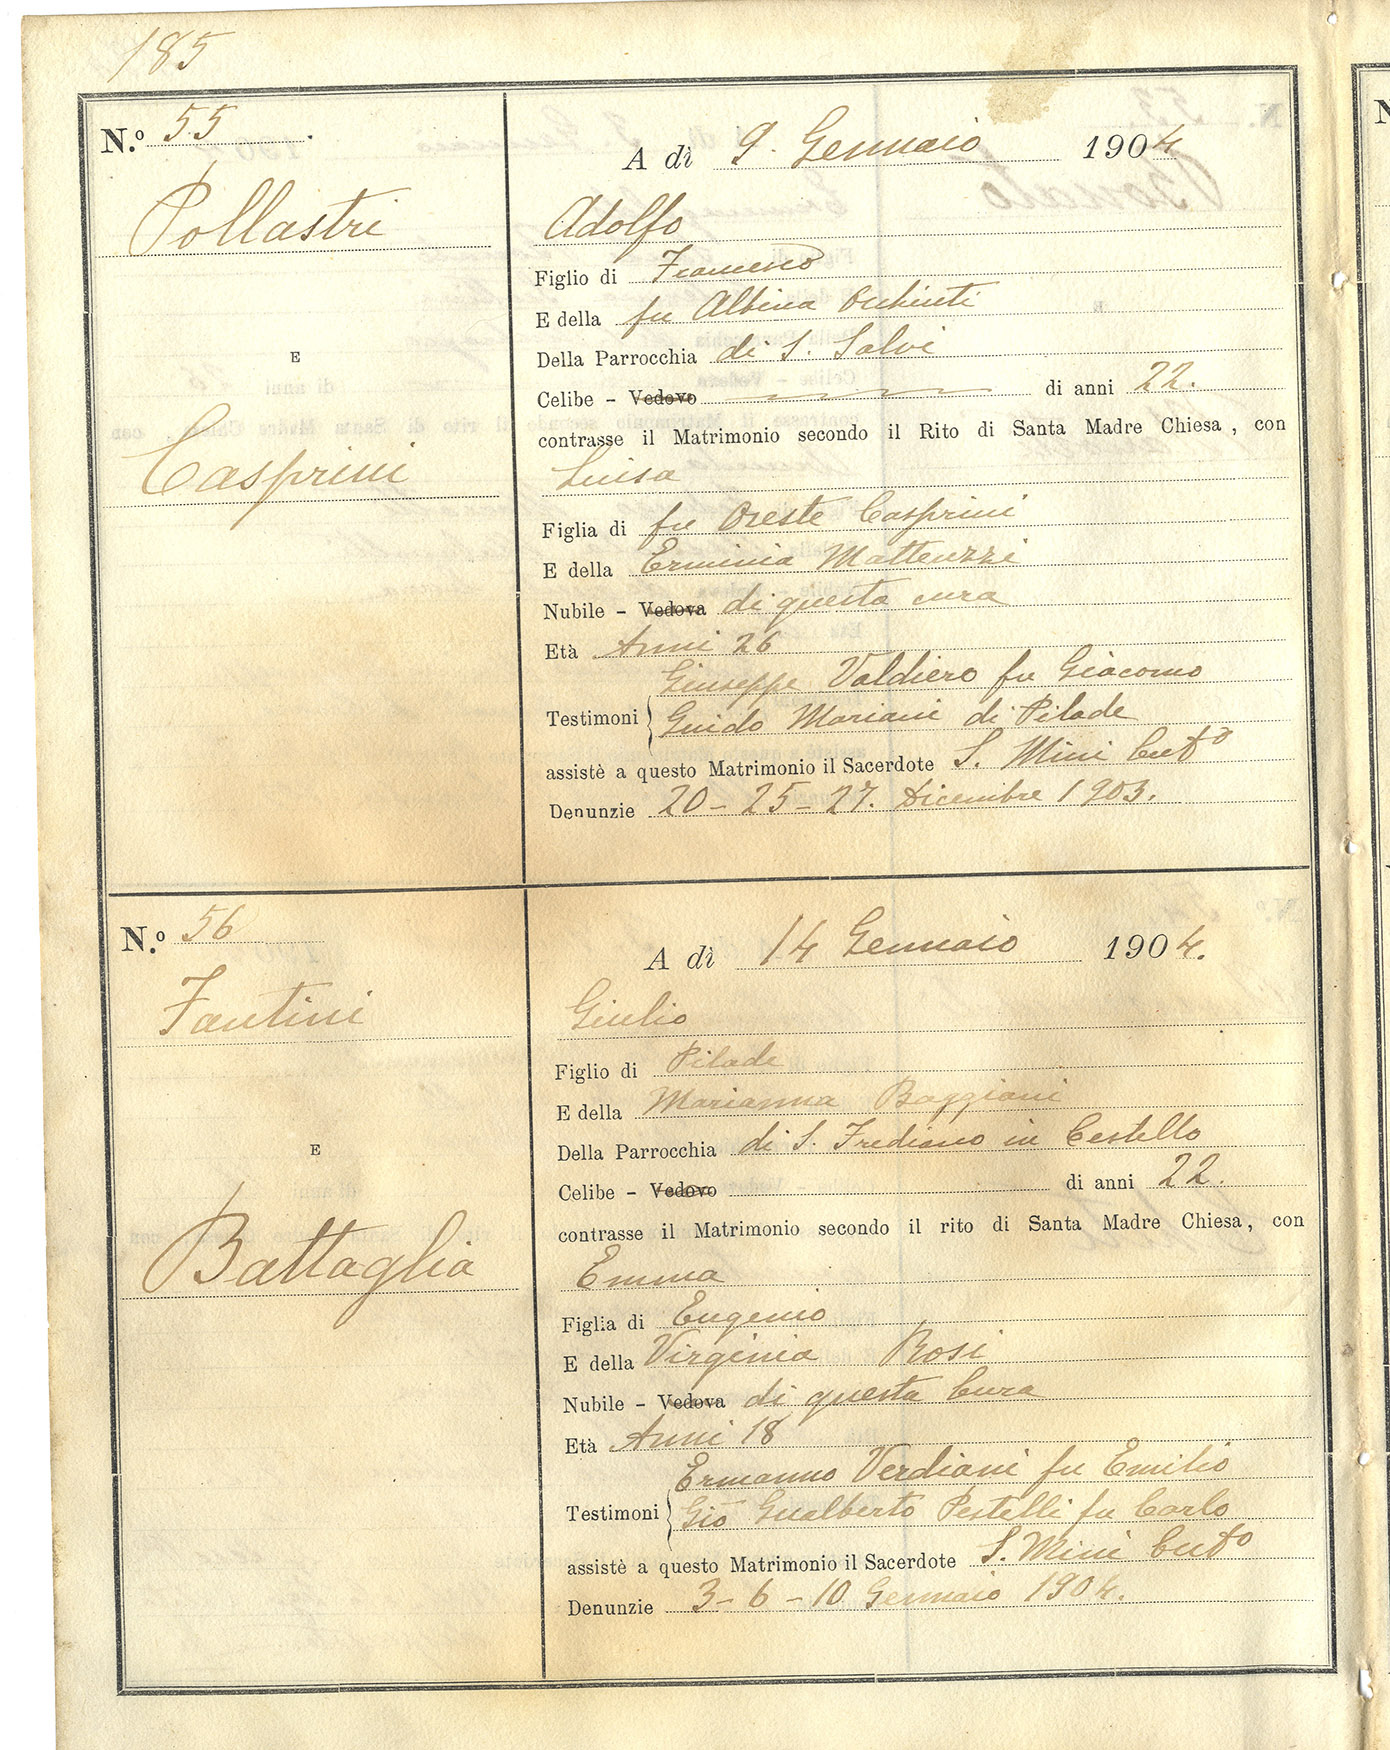 185
N.º 55.
Pollastri
E
Casprini
A dì 9. Gennaio 1904
Adolfo
Figlio di Francesco
E della fu Albina Occhinti
Della Parrocchia di S. Salvi
Celibe – Vedovo di anni 22.
contrasse il Matrimonio secondo il Rito di Santa Madre Chiesa, con
Luisa
Figlia di fu Oreste Casprini
E della Erminia Matteuzzi
Nubile – Vedova di questa cura
Età Anni 26
Giuseppe Valdiero fu Giacomo
Testimoni { Guido Mariani di Pilade
assistè a questo Matrimonio il Sacerdote S. Mini Cut.º
Denunzie 20 – 25 – 27. Dicembre 1903.
N.º 56
Fantini
E
Battaglia
A dì 14 Gennaio 1904.
Giulio
Figlio di Pilade
E della Marianna Baggiani
Della Parrocchia di S. Frediano in Cestello
Celibe – Vedovo di anni 22.
contrasse il Matrimonio secondo il rito di Santa Madre Chiesa, con
Emma
Figlia di Eugenio
E della Virginia Rosi
Nubile – Vedova di questa Cura
Età Anni 18
Ermanno Verdiani fu Emilio
Testimoni { Gio Gualberto Pestelli fu Carlo
assistè a questo Matrimonio il Sacerdote S. Mini Cut.º
Denunzie 3 – 6 – 10 Gennaio 1904.